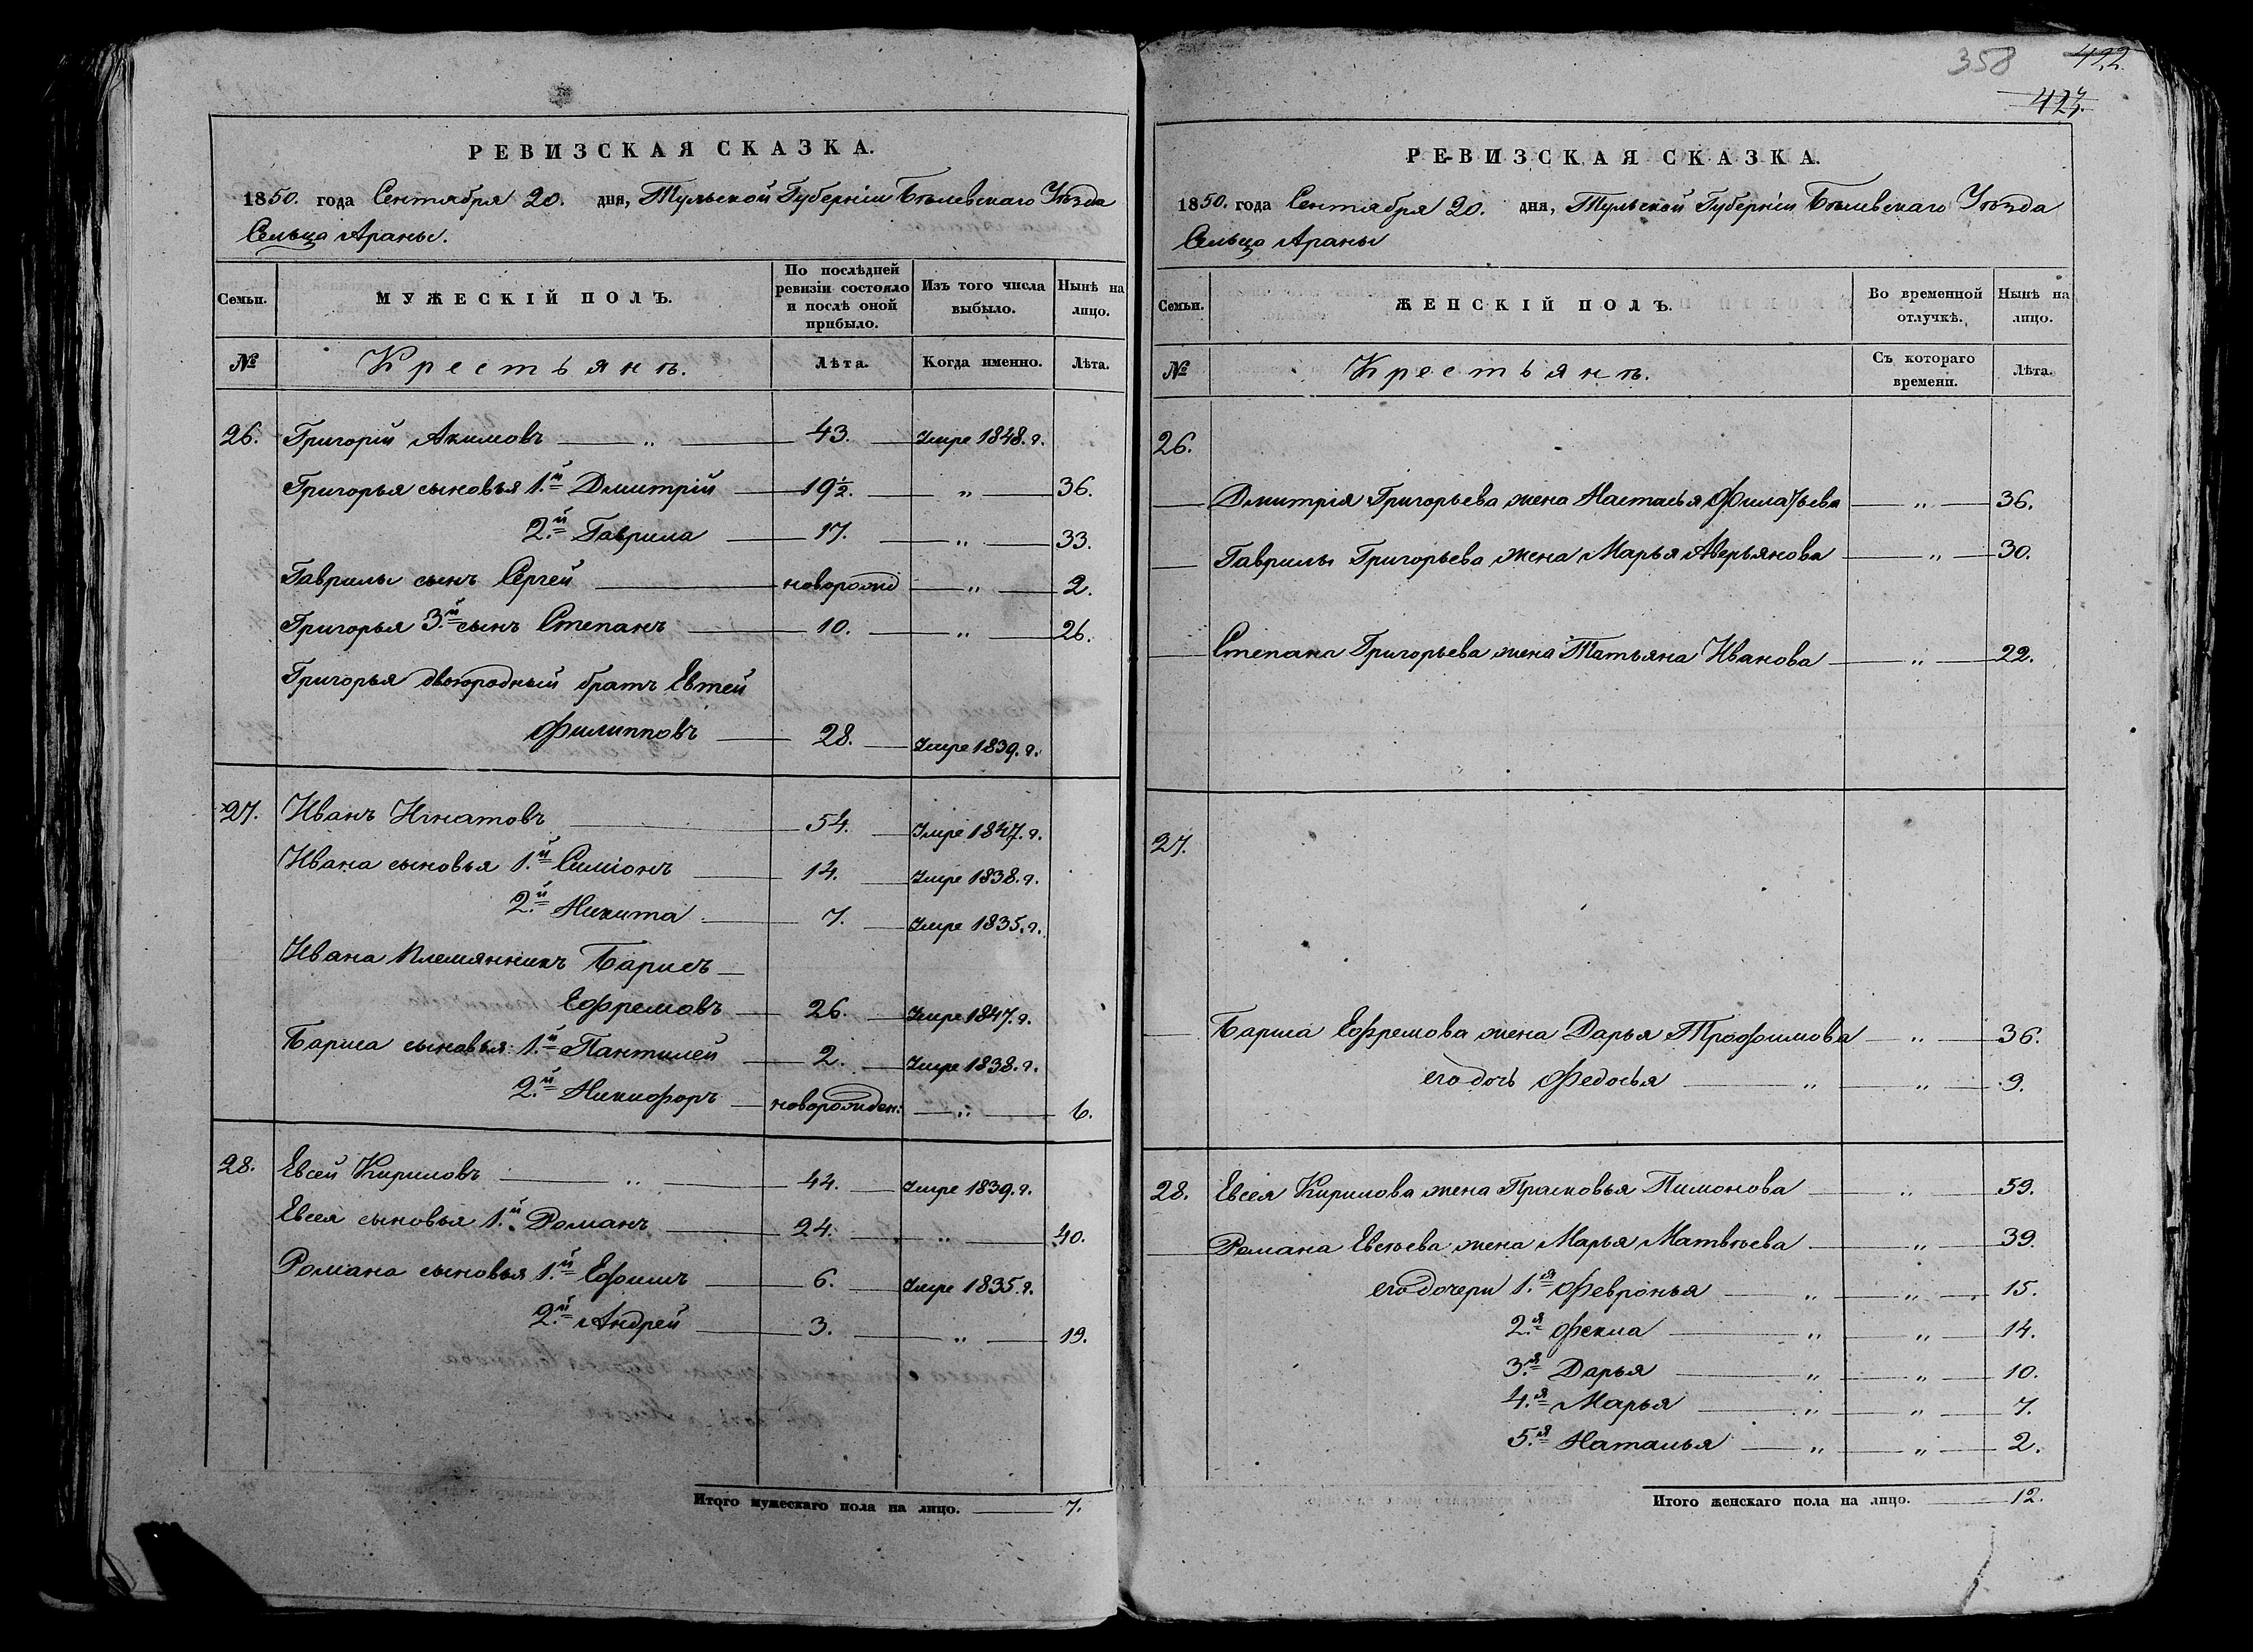 РЕВИЗСКАЯ СКАЗКА.
1850. года Сентября 20. дня, Тульской Губерніи Бѣлевскаго Уѣзда
Сельца Араны.
Семьи. МУЖЕСКІЙ ПОЛЪ. По послѣдней ревизіи состояло и послѣ оной прибыло. Изъ того числа выбыло. Нынѣ на лицо.
№ Крестьянъ. Лѣта. Когда именно. Лѣта.
26. Григорій Акимовъ — „ — 43. — Умре 1848. г.
Григорья сыновья 1.й Дмитрій — 19½. — „ — 36.
2.й Гаврила — 17. — „ — 33.
Гаврилы сынъ Сергей — новорожд — „ — 2.
Григорья 3.й сынъ Степанъ — 10. — „ — 26.
Григорья двоюродный братъ Евтей
Филипповъ — 28. — Умре 1839. г.
27. Иванъ Игнатовъ — 54. — Умре 1847. г.
Ивана сыновья 1.й Симіонъ — 14. — Умре 1838. г.
2.й Никита — 7. — Умре 1835. г.
Ивана племянникъ Барисъ —
Ефремовъ — 26. — Умре 1847. г.
Бариса сыновья: 1.й Пантилей — 2. — Умре 1838. г.
2.й Никифоръ — новорожден: — „ — 6.
28. Евсей Кириловъ — „ — 44. — Умре 1839. г.
Евсея сыновья 1.й Романъ — 24. — „ — 40.
Романа сыновья 1.й Ефимъ — 6. — Умре 1835. г.
2.й Андрей — 3. — „ — 19.
Итого мужескаго пола на лицо. — 7.
358 422.
РЕВИЗСКАЯ СКАЗКА.
1850. года Сентября 20. дня, Тульской Губерніи Бѣлевскаго Уѣзда
Сельца Араны
Семьи. ЖЕНСКІЙ ПОЛЪ. Во временной отлучкѣ. Нынѣ на лицо.
№ Крестьянъ. Съ котораго времени. Лѣта.
26.
— Дмитрія Григорьева жена Настасья Филатьева — „ — 36.
— Гаврилы Григорьева жена Марья Аверьянова — „ — 30.
— Степана Григорьева жена Татьяна Иванова — „ — 22.
27.
— Бариса Ефремова жена Дарья Трофимова — „ — 36.
его дочь Федосья — „ — „ — 9.
28. Евсея Кирилова жена Прасковья Пимонова — „ — 59.
— Романа Евсѣева жена Марья Матвѣева — „ — 39.
его дочери 1.я Февронья — „ — „ — 15.
2.я Фекла — „ — „ — 14.
3.я Дарья — „ — „ — 10.
4.я Марья — „ — „ — 7.
5.я Наталья — „ — „ — 2.
Итого женскаго пола на лицо. — 12.